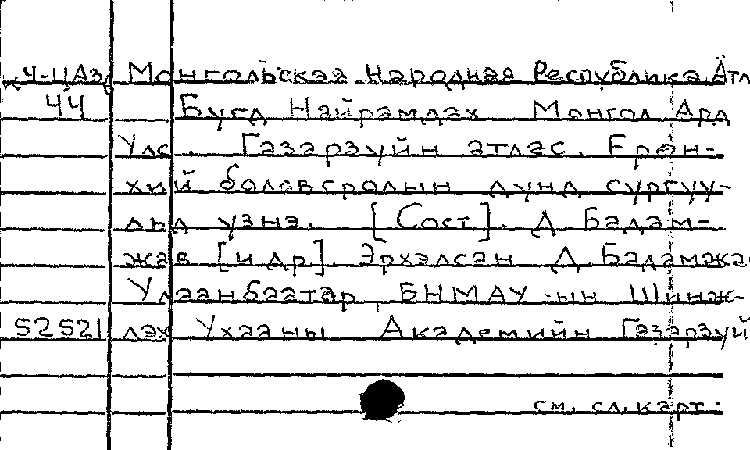 Ч-ЦАз Монгольская Народная Республика Атл
44 Бугд Найрамдах Монгол Ард
Улс. Газарзуйн атлас. Ерөн-
хий боловсролын дунд сургуу-
льд үзнэ. [Сост]. Д Бадам-
жав [и др]. Эрхэлсэн Д. Бадамжа
Улаанбаатар, БНМАУ-ын Шинж-
52521 лэх Ухааны Академийн Газарзүй
см. сл. карт.